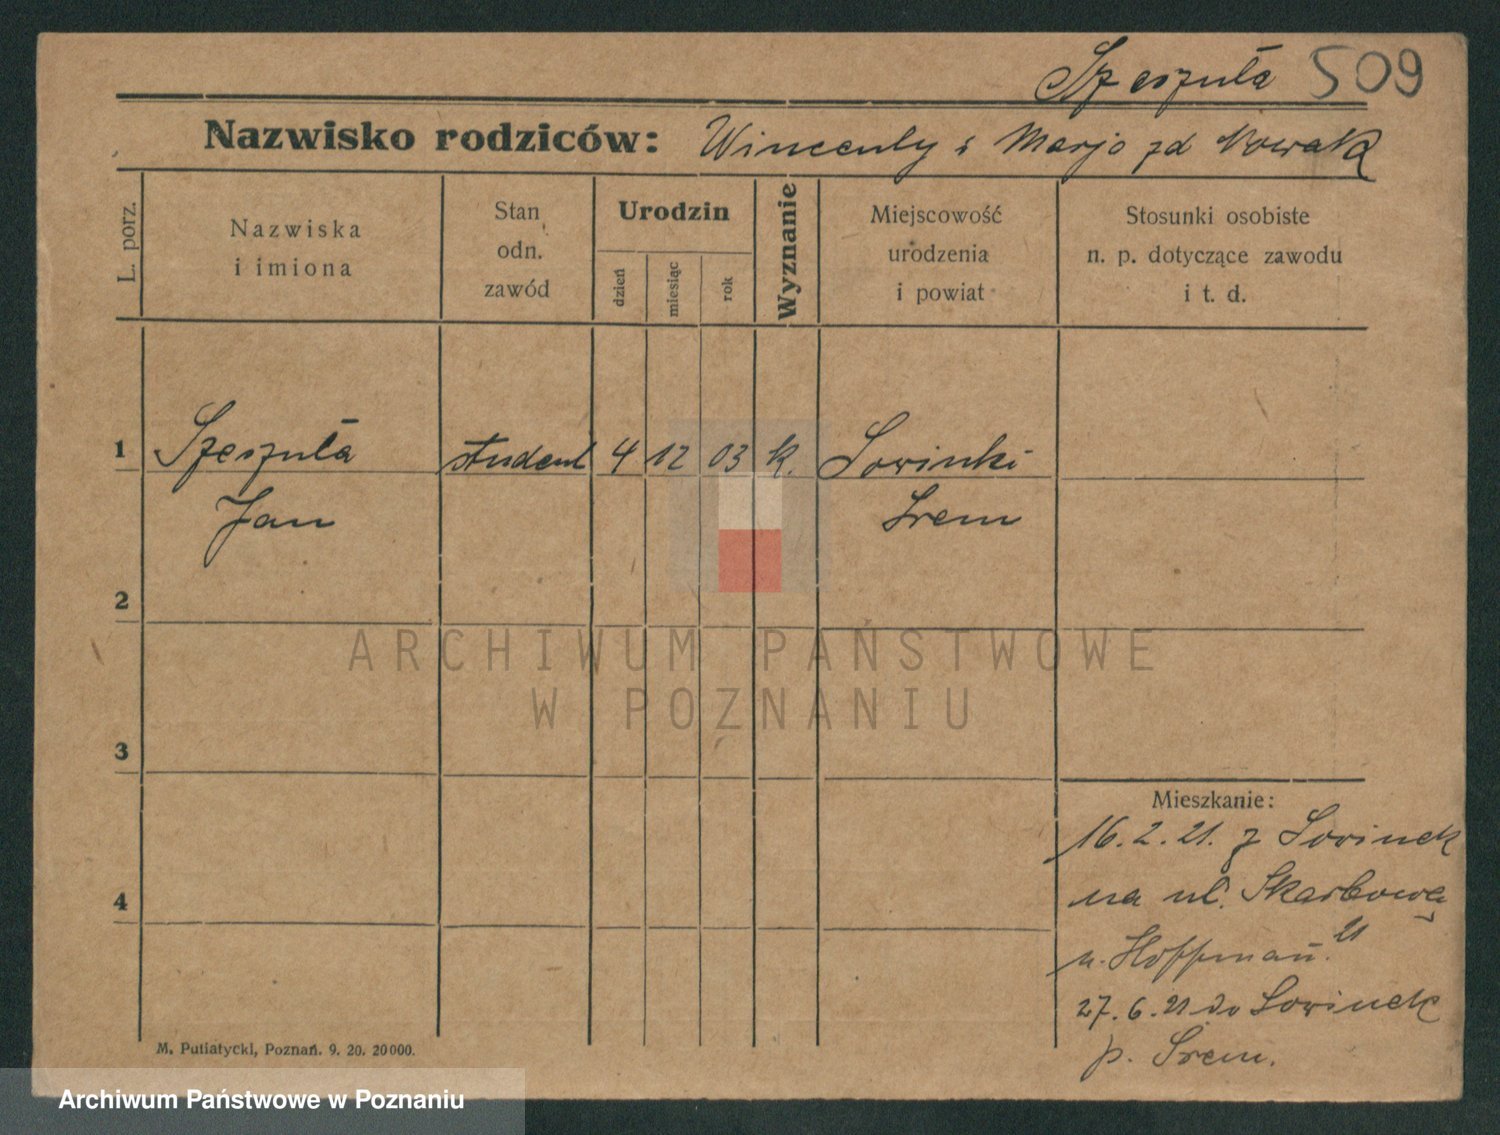 Szeszuła 509
Nazwisko rodziców: Wincenty i Marja zd Nowak
L. porz.
Nazwiska
i imiona
Stan
odn.
zawód
Urodzin
dzień
miesiąc
rok
Wyznanie
Miejscowość
urodzenia
i powiat
Stosunki osobiste
n. p. dotyczące zawodu
i t. d.
1 Szeszuła student 4 12 03 k. Sowinki
Jan Srem
2
ARCHIWUM PAŃSTWOWE
W POZNANIU
3
Mieszkanie:
16.2.21. z Sowinek
4
na ul. Skarbową
21
u. Hoffmañ.
27.6.21 do Sowinek
p. Srem.
M. Putiatycki, Poznań. 9. 20. 20000.
Archiwum Państwowe w Poznaniu